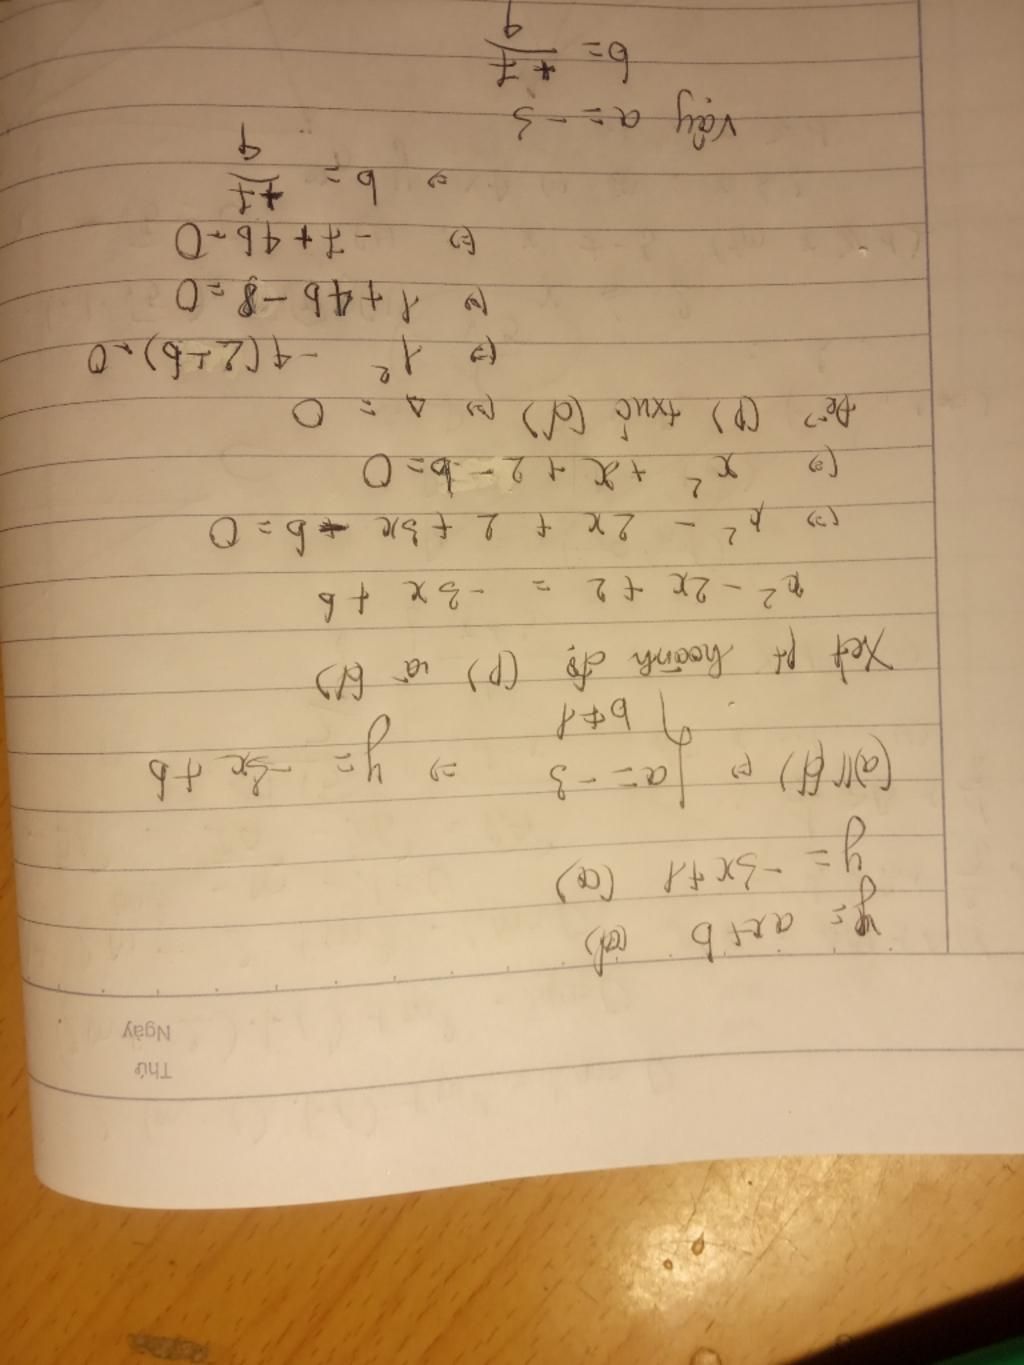 Thứ
Ngày
y = ax + b (d)
y = -3x + 1 (a)
(a) // (d) ⇔ { a = -3 ⇒ y = -3x + b
b ≠ 1
Xét pt hoành độ (P) và (d)
x² - 2x + 2 = -3x + b
(=) x² - 2x + 2 + 3x - b = 0
(=) x² + x + 2 - b = 0
Để (P) txúc (d) (=) Δ = 0
(=) 1² - 4(2 - b) = 0
(=) 1 + 4b - 8 = 0
(=) -7 + 4b = 0
⇒ b = +7/4
Vậy a = -3
b = +7/4